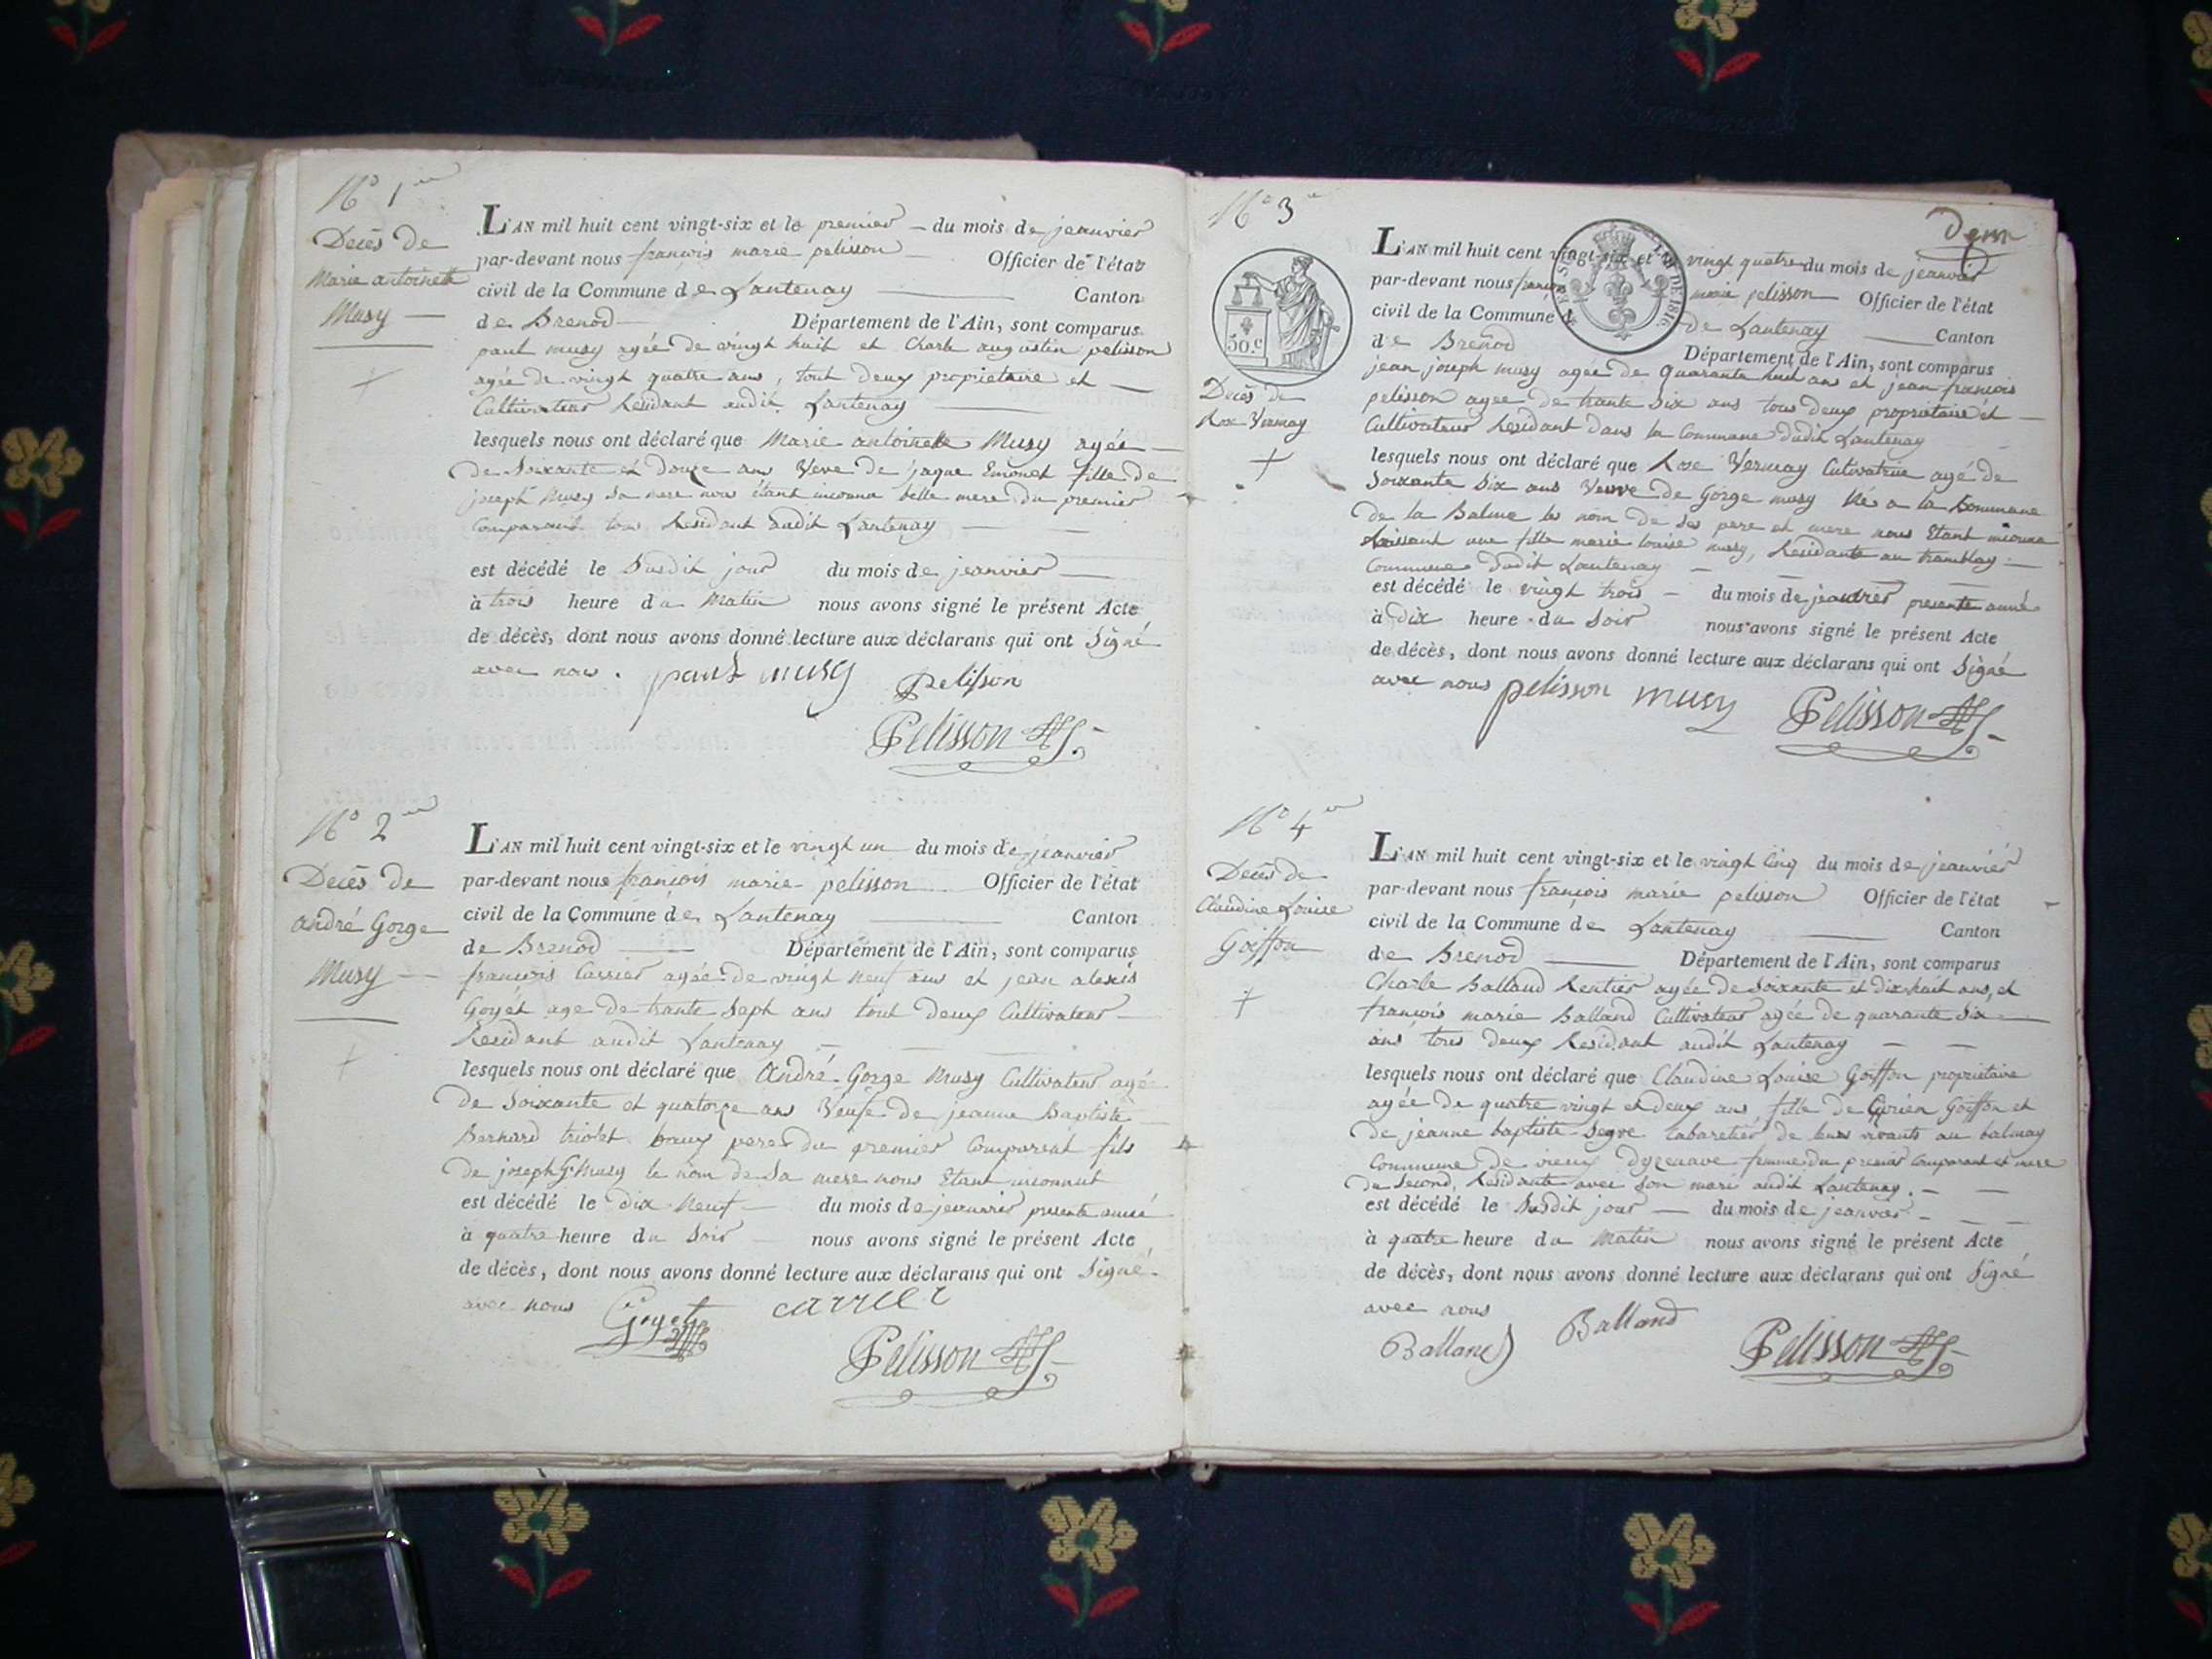 No 1er
Decés de
Marie antoinette
Musy
L'AN mil huit cent vingt-six et le premier du mois de jeanvier
par-devant nous françois marie pelisson Officier de l'état
civil de la Commune de Lantenay Canton
de Brenod Département de l'Ain, sont comparus
paul musy agée de vingt huit et Charle augustin pelisson
agée de vingt quatre ans, tout deux proprietaire et
Cultivateur Residant audit Lantenay
lesquels nous ont déclaré que Marie antoinette Musy agée
de Soixante et douze ans Veve de jaque Emonet fille de
joseph Musy Sa mere nous étant inconnu belle mere du premier
Comparant tous Residant audit Lantenay
est décédé le Susdit jour du mois de jeanvier
à trois heure du Matin nous avons signé le présent Acte
de décès, dont nous avons donné lecture aux déclarans qui ont Signé
avec nous. paul musy pelisson
Pelisson
No 2
Decés de
andré Gorge
Musy
L'AN mil huit cent vingt-six et le vingt un du mois de jeanvier
par-devant nous françois marie pelisson Officier de l'état
civil de la Commune de Lantenay Canton
de Brenod Département de l'Ain, sont comparus
françois Carrier agée de vingt neuf ans et jean alexis
Goyet age de trante Sept ans tout deux Cultivateur
Residant audit Lantenay
lesquels nous ont déclaré que André Gorge Musy Cultivateur agée
de Soixante et quatorze ans Veuf de jeanne Baptiste
Bernard triolet baux pere du premier Comparent fils
de joseph G. Musy le nom de Sa mere nous Etant inconnut
est décédé le Dix Neuf du mois de jeanvier presente année
à quatre heure du Soir nous avons signé le présent Acte
de décès, dont nous avons donné lecture aux déclarans qui ont Signé
avec nous Goyet carrier
Pelisson
No 3
50.c
Decés de
Rose Vermay
L'AN mil huit cent vingt-six et le vingt quatre du mois de jeanvier
par-devant nous françois marie pelisson Officier de l'état
civil de la Commune de Lantenay Canton
de Brenod Département de l'Ain, sont comparus
DE 1816
jean joseph musy agée de Quarante huit ans et jean françois
pelisson agee de trante Six ans tous deux propriétaire et
Cultivateur Residant dans la Commune dudit Lantenay
lesquels nous ont déclaré que Rose Vermay Cutivatrice agé de
Soixante Six ans Veuve de Gorge musy Né a la Commune
de la Balme les nom de Ses pere et mere nous Etant inconnu
Laissant une fille marie louise musy, Residante au tramblay
Commune dudit Lantenay
est décédé le vingt trois du mois de jeanvier presente année
à dix heure du Soir nous avons signé le présent Acte
de décès, dont nous avons donné lecture aux déclarans qui ont Signé
avec nous pelisson musy Pelisson
No 4
Decés de
Claudine Louise
Goiffon
L'AN mil huit cent vingt-six et le vingt Cinq du mois de jeanvier
par-devant nous françois marie pelisson Officier de l'état
civil de la Commune de Lantenay Canton
de Brenod Département de l'Ain, sont comparus
Charle Balland Rentier agée de Soixante et dixhuit ans, et
françois marie Balland Cultivateur agée de quarante Six
ans tous deux Residant audit Lantenay
lesquels nous ont déclaré que Claudine Louise Goiffon propriétaire
agée de quatre vingt et deux ans, fille de Goiffon et
de jeanne baptiste Cabaretier de leurs vivants au balmay
Commune de vieux femme du premier Comparant et mere
du Second, Residante avec Son mari audit Lantenay.
est décédé le Susdit jour du mois de jeanvier
à quatre heure du Matin nous avons signé le présent Acte
de décès, dont nous avons donné lecture aux déclarans qui ont Signé
avec nous
Balland Balland Pelisson